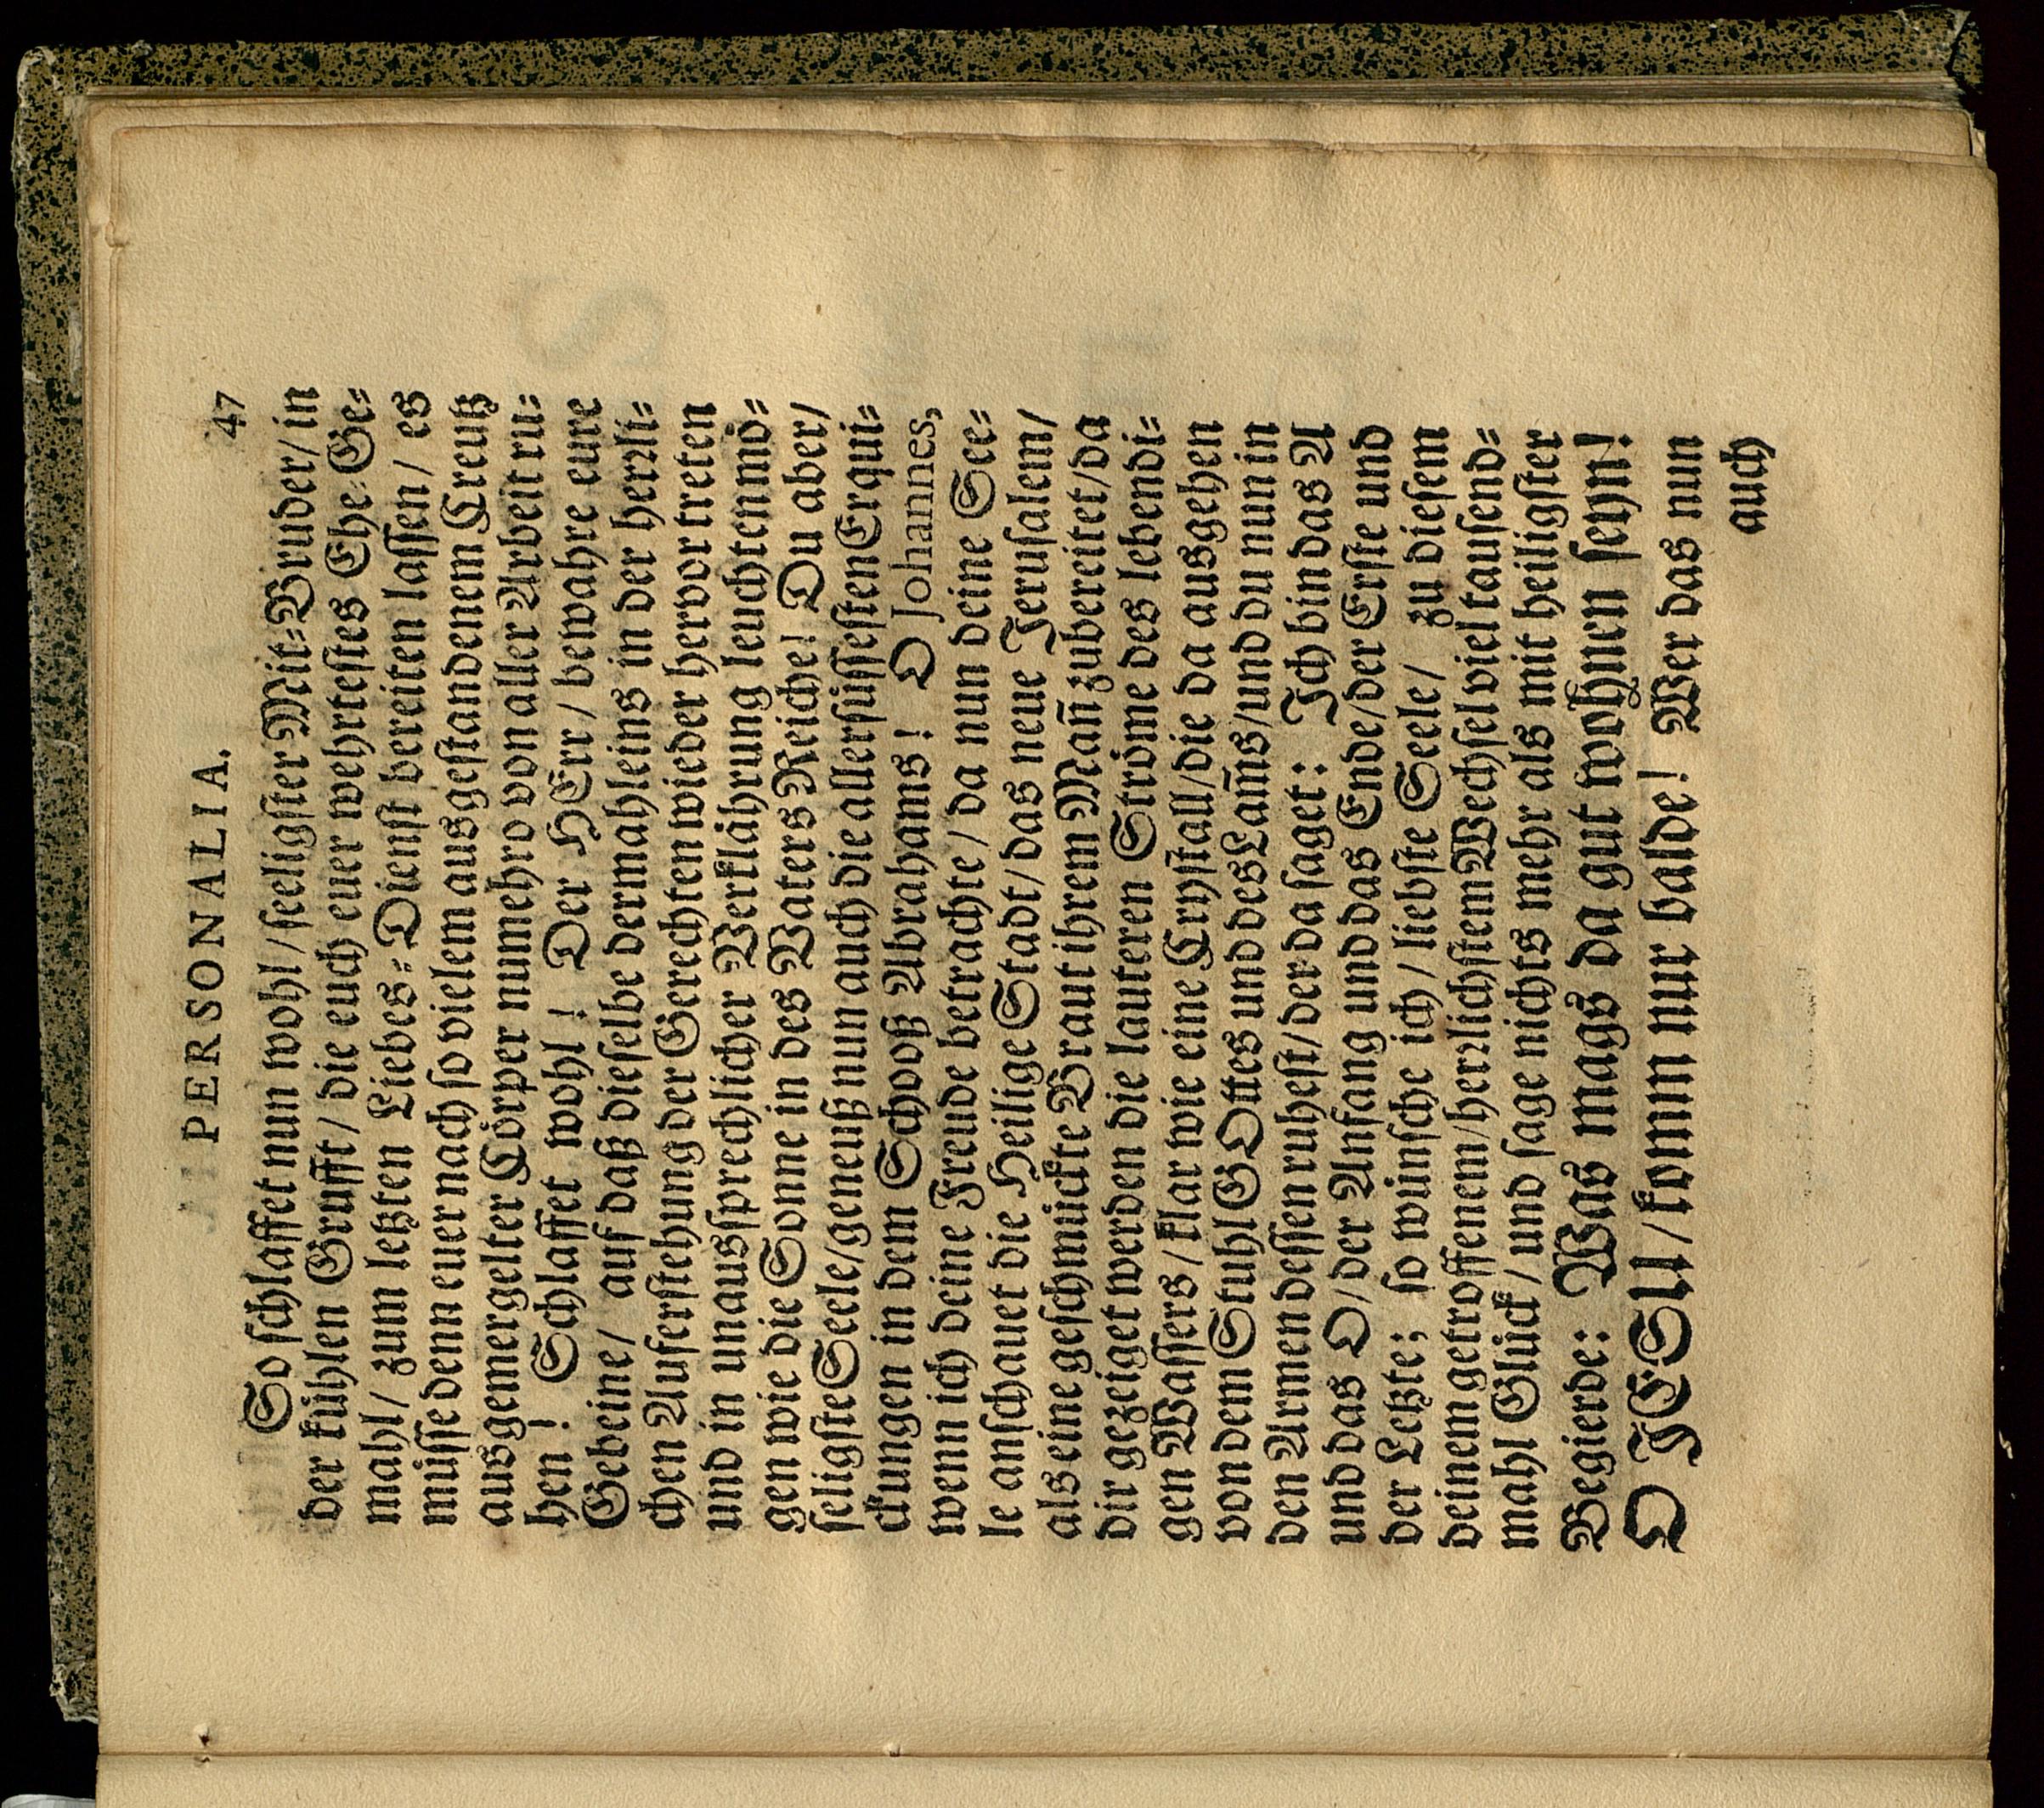 PERSONALIA. 47
So schlaffet nun wohl / seeligster Mit-Bruder / in
der kühlen Grufft / die euch euer wehrtestes Ehe-Ge-
mahl / zum letzten Liebes-Dienst bereiten lassen / es
müsse denn euer nach so vielem ausgestandenem Creutz
ausgemergelter Cörper nunmehro von aller Arbeit ru-
hen! Schlaffet wohl! Der HErr / bewahre eure
Gebeine / auf daß dieselbe dermahleins in der herrli-
chen Auferstehung der Gerechten wieder hervor treten
und in unaussprechlicher Verklährung leuchten mö-
gen wie die Sonne in des Vaters Reiche! Du aber /
seligste Seele / geneuß nun auch die allersüssesten Erqui-
ckungen in dem Schooß Abrahams! O Johannes,
wenn ich deine Freude betrachte / da nun deine See-
le anschauet die Heilige Stadt / das neue Jerusalem /
als eine geschmückte Braut ihrem Mañ zubereitet / da
dir gezeiget werden die lauteren Ströme des lebendi-
gen Wassers / klar wie eine Crystall / die da ausgehen
von dem Stuhl GOttes und des Lam̃s / und du nun in
den Armen dessen ruhest / der da saget: Ich bin das A
und das O / der Anfang und das Ende / der Erste und
der Letzte; so wünsche ich / liebste Seele / zu diesem
deinem getroffenem / herrlichstem Wechsel viel tausend-
mahl Glück / und sage nichts mehr als mit heiligster
Begierde: Was mags da gut wohnen seyn!
O JESU / komm nur balde! Wer das nun
auch